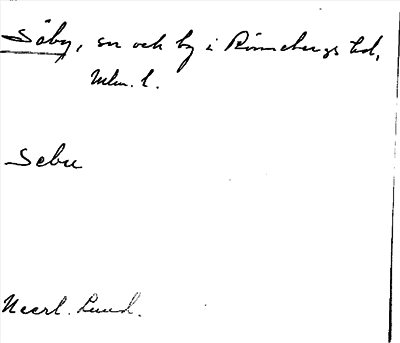 Säby, sn och by i Rönnebergs hd,
Mlm. l.
Sebu
Neerl. Lund.